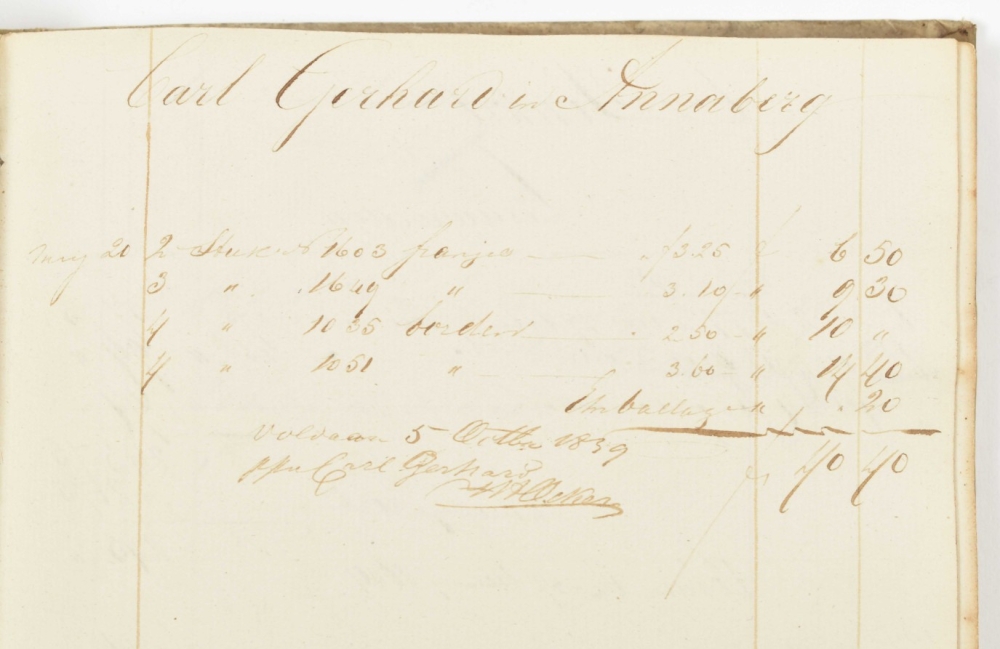 Carl Gerhard in Annaberg
May 21 2 Stuks No 1603 franjes f 3.25 f 6 50
3 " 1649 " 3.10 " 9 30
4 " 1035 borders 2.50 " 10 "
4 " 1051 " 3.60 " 14 40
Emballage " . 20
f 40 40
Voldaan 5 Octbr 1839
ppn Carl Gerhard